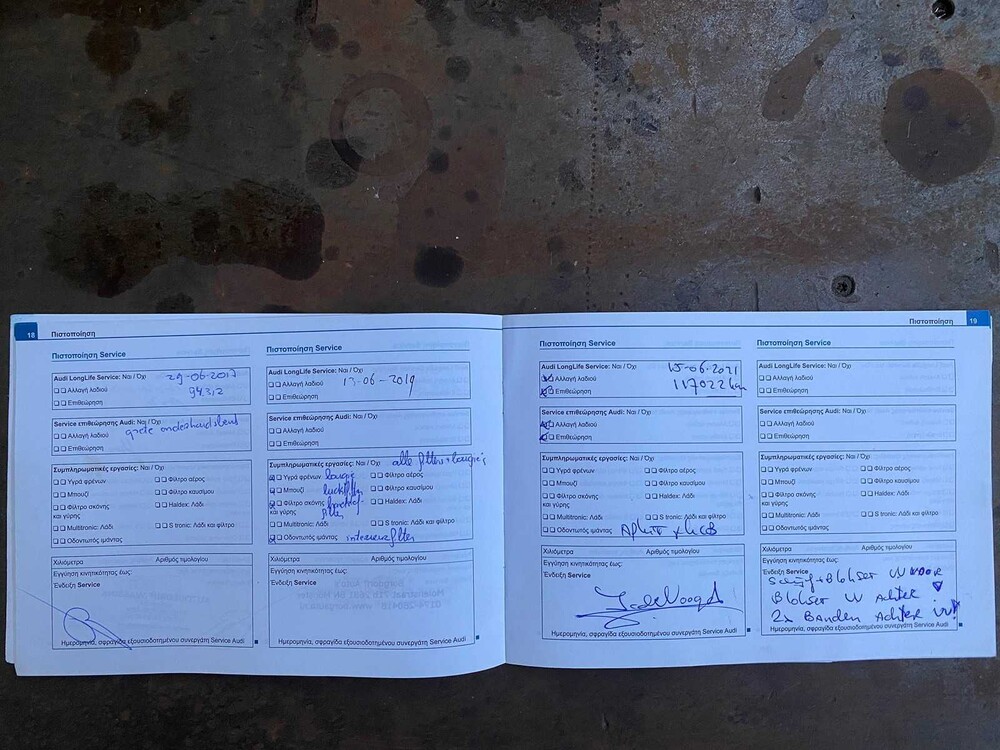 18 Πιστοποίηση
Πιστοποίηση Service
Audi LongLife Service: Ναι / Όχι 29-06-2017
Αλλαγή λαδιού 94312
Επιθεώρηση
Service επιθεώρησης Audi: Ναι / Όχι
Αλλαγή λαδιού grote onderhoudsbeurt
Επιθεώρηση
Συμπληρωματικές εργασίες: Ναι / Όχι
Υγρά φρένων Φίλτρο αέρος
Μπουζί Φίλτρο καυσίμου
Φίλτρο σκόνης Haldex: Λάδι
και γύρης
Multitronic: Λάδι S tronic: Λάδι και φίλτρο
Οδοντωτός ιμάντας
Χιλιόμετρα Αριθμός τιμολογίου
Εγγύηση κινητικότητας έως:
Ένδειξη Service
Ημερομηνία, σφραγίδα εξουσιοδοτημένου συνεργάτη Service Audi
Πιστοποίηση Service
Audi LongLife Service: Ναι / Όχι
Αλλαγή λαδιού 13-06-2019
Επιθεώρηση
Service επιθεώρησης Audi: Ναι / Όχι
Αλλαγή λαδιού
Επιθεώρηση
Συμπληρωματικές εργασίες: Ναι / Όχι alle filters + bougie's
Υγρά φρένων bougie Φίλτρο αέρος
Μπουζί luchtfilter Φίλτρο καυσίμου
Φίλτρο σκόνης Haldex: Λάδι
και γύρης filter
Multitronic: Λάδι S tronic: Λάδι και φίλτρο
Οδοντωτός ιμάντας interieurfilter
Χιλιόμετρα Αριθμός τιμολογίου
Εγγύηση κινητικότητας έως:
Ένδειξη Service
Ημερομηνία, σφραγίδα εξουσιοδοτημένου συνεργάτη Service Audi
Πιστοποίηση 19
Πιστοποίηση Service
Audi LongLife Service: Ναι / Όχι 15-06-2021
Αλλαγή λαδιού 117022 km
Επιθεώρηση
Service επιθεώρησης Audi: Ναι / Όχι
Αλλαγή λαδιού
Επιθεώρηση
Συμπληρωματικές εργασίες: Ναι / Όχι
Υγρά φρένων Φίλτρο αέρος
Μπουζί Φίλτρο καυσίμου
Φίλτρο σκόνης Haldex: Λάδι
και γύρης
Multitronic: Λάδι S tronic: Λάδι και φίλτρο
Οδοντωτός ιμάντας
Χιλιόμετρα Αριθμός τιμολογίου
Εγγύηση κινητικότητας έως:
Ένδειξη Service
Ημερομηνία, σφραγίδα εξουσιοδοτημένου συνεργάτη Service Audi
Πιστοποίηση Service
Audi LongLife Service: Ναι / Όχι
Αλλαγή λαδιού
Επιθεώρηση
Service επιθεώρησης Audi: Ναι / Όχι
Αλλαγή λαδιού
Επιθεώρηση
Συμπληρωματικές εργασίες: Ναι / Όχι
Υγρά φρένων Φίλτρο αέρος
Μπουζί Φίλτρο καυσίμου
Φίλτρο σκόνης Haldex: Λάδι
και γύρης
Multitronic: Λάδι S tronic: Λάδι και φίλτρο
Οδοντωτός ιμάντας
Χιλιόμετρα Αριθμός τιμολογίου
Εγγύηση κινητικότητας έως:
Ένδειξη Service
Schijf + Blokset V voor
Blokset V Achter
2x Banden Achter
Ημερομηνία, σφραγίδα εξουσιοδοτημένου συνεργάτη Service Audi